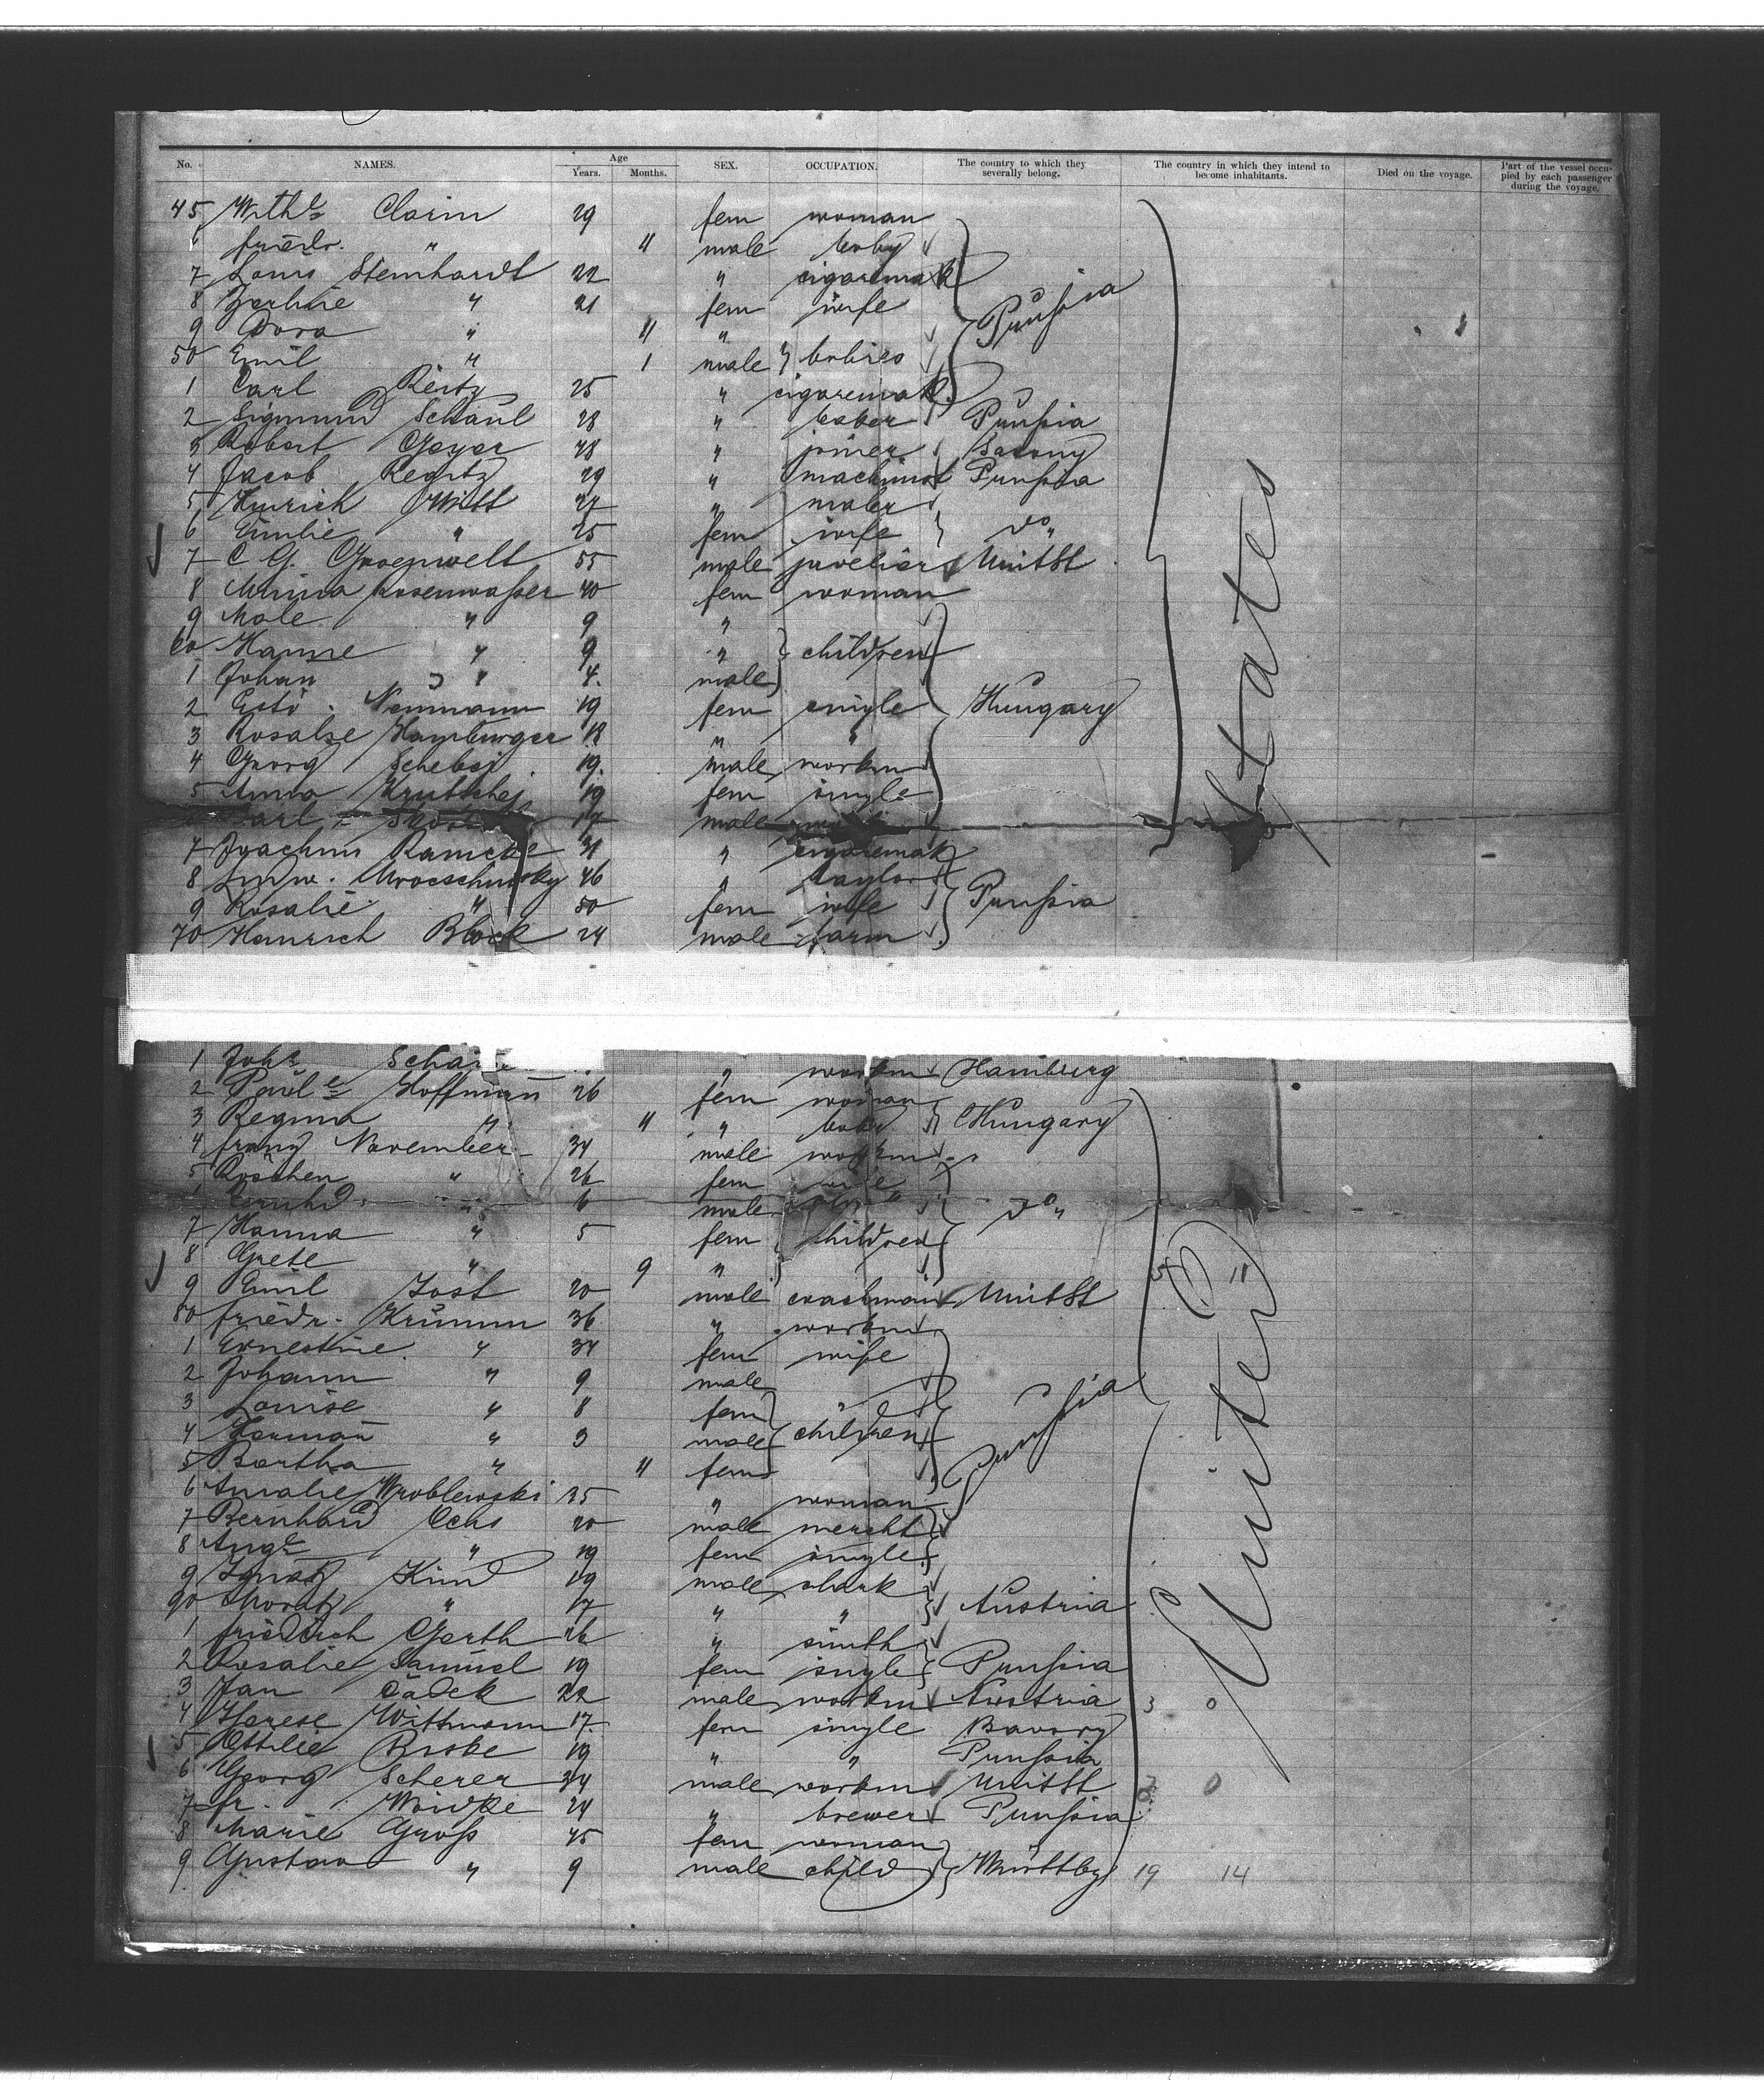 No. NAMES. Age Years. Months. SEX. OCCUPATION. The country to which they severally belong. The country in which they intend to become inhabitants. Died on the voyage. Part of the vessel occupied by each passenger during the voyage.
45 Wthe Clarin 29 fem woman
6 friedr. " 11 male baby
7 Louis Steinhardt 22 " cigaremak
8 " 21 fem wife Prussia
9 Dora " 11 "
50 Emil " 1 male babies
1 Carl Reitz 25 " cigaremak
2 Sigmund Schaul 28 " Prussia
3 Robert Geyer 28 " joiner Saxony
4 Jacob Regitz 29 " machinist Prussia
5 Heinrich Witt 27 "
6 Emilie " 25 fem wife do
7 C. G. Groenwelt 55 male juvelier UnitSt
8 Minna Rosenwasser 40 fem woman
9 Male " 9 "
60 Hanne " 9 " children
1 Johan " 4 male
2 Neumann 19 fem single Hungary
3 Rosalie Hamburger 18 " "
4 Georg 19 male workm
5 Anna 19 fem single
6 Carl 17 male
7 Joachim 31 " cigaremak
8 Ludw. 46 " taylor
9 Rosalie " 50 fem wife Prussia
70 Heinrich Block 24 male farm
States
1 Johs " workm Hamburg
2 Paule Hoffmann 26 fem woman
3 Regina " 11 " baby Hungary
4 franz November 34 male workm
5 Röschen " 26 fem wife
" 6 male do
7 Hanna " 5 fem children
8 Grete " 9 "
9 Emil Jost 20 male coachman UnitSt
80 friedr. Krumm 36 " workm
1 Ernestine " 34 fem wife
2 Johann " 9 male
3 Louise " 8 fem
4 Herman " 3 male children Prussia
5 Bertha " 11 fem
6 Amalie Wroblewski 25 " woman
7 Bernhard Ochs 20 male mercht
8 Auge " 19 fem single
9 Ignatz Kind 19 male clerk
90 Moritz " 17 " " Austria
1 friedrich Gerth 26 " smith
2 Rosalie Samuel 19 fem single Prussia
3 Jan Cadek 22 male workm Austria 3 0
4 Therese Wittmann 17 fem single Bavary
5 Ottilie Riske 19 " " Prussia
6 Georg Scherer 34 male workm UnitSt 0
7 fr. Woidke 24 " brewer Prussia
8 Marie Gross 45 fem woman
9 Gustav " 9 male child Württbg 19 14
United